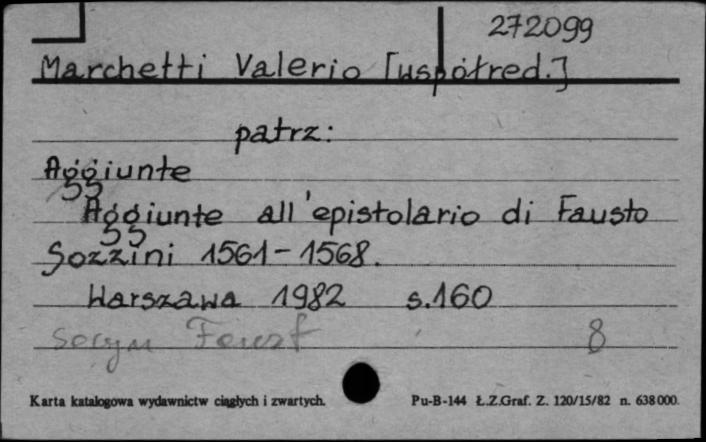 272099
Marchetti Valerio [współred.]
patrz:
Aggiunte
Aggiunte all'epistolario di Fausto
Sozzini 1561-1568.
Warszawa 1982 s.160
Socyn Faust 8
Karta katalogowa wydawnictw ciągłych i zwartych. Pu-B-144 Ł.Z.Graf. Z. 120/15/82 n. 638000.